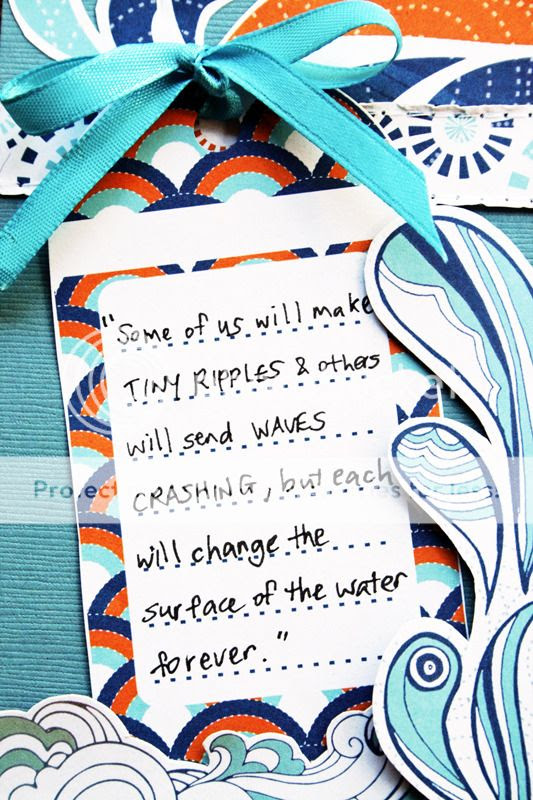 "Some of us will make
TINY RIPPLES & others
will send WAVES
CRASHING, but each
will change the
surface of the water
forever."